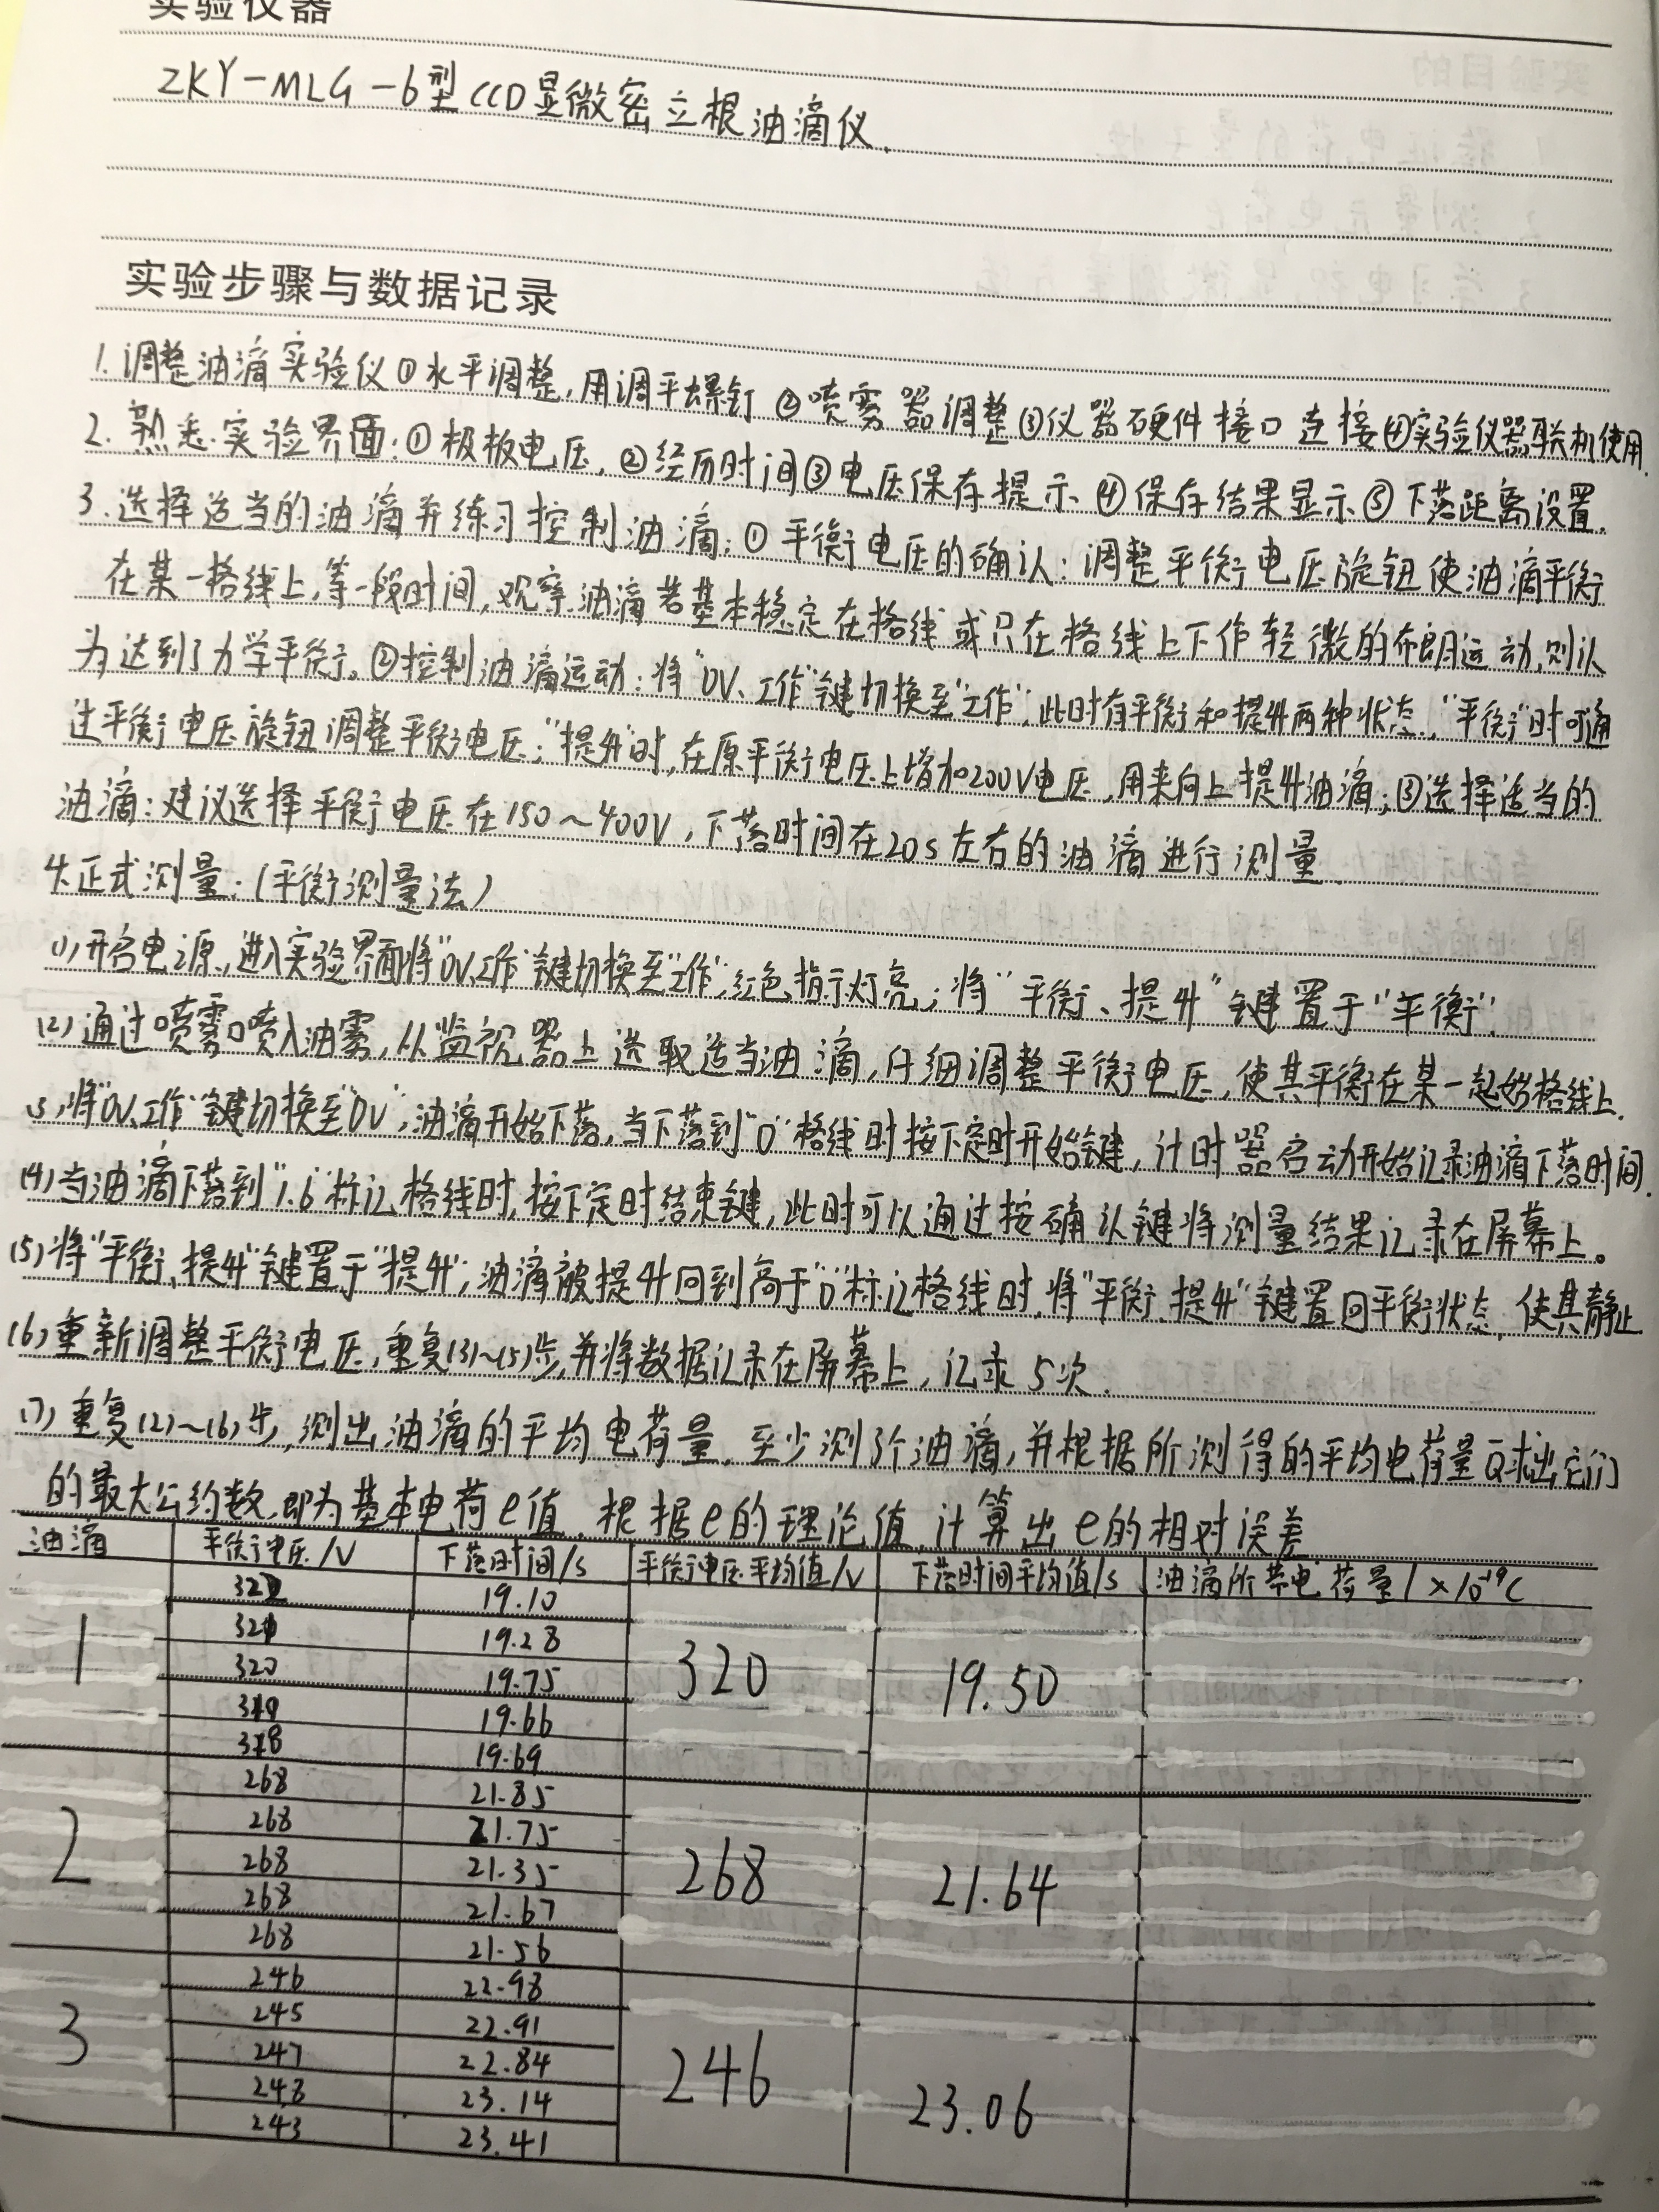 实验仪器
ZKY-MLG-6型CCD显微密立根油滴仪.
实验步骤与数据记录
1.调整油滴实验仪①水平调整,用调平螺钉 ②喷雾器调整③仪器硬件接口连接④实验仪器联机使用.
2.熟悉实验界面:①极板电压,②经历时间③电压保存提示④保存结果显示⑤下落距离设置.
3.选择适当的油滴并练习控制油滴:①平衡电压的确认:调整平衡电压旋钮使油滴平衡
在某一格线上,等一段时间,观察油滴若基本稳定在格线或只在格线上下作轻微的布朗运动,则认
为达到了力学平衡。②控制油滴运动:将"0V、工作"键切换至"工作",此时有平衡和提升两种状态,"平衡"时可通
过平衡电压旋钮调整平衡电压;"提升"时,在原平衡电压上增加200V电压,用来向上提升油滴;③选择适当的
油滴:建议选择平衡电压在150~400V,下落时间在20s左右的油滴进行测量.
4.正式测量:(平衡测量法)
(1)开启电源,进入实验界面将"0V、工作"键切换至"工作",红色指示灯亮;将"平衡、提升"键置于"平衡".
(2)通过喷雾口喷入油雾,从监视器上选取适当油滴,仔细调整平衡电压,使其平衡在某一起始格线上.
(3)将"0V、工作"键切换至"0V",油滴开始下落,当下落到"0"格线时按下定时开始键,计时器启动开始记录油滴下落时间.
(4)当油滴下落到"1.6"标记格线时,按下定时结束键,此时可以通过按确认键将测量结果记录在屏幕上。
(5)将"平衡、提升"键置于"提升",油滴被提升回到高于"0"标记格线时,将"平衡、提升"键置回平衡状态,使其静止.
(6)重新调整平衡电压,重复(3)~(5)步,并将数据记录在屏幕上,记录5次.
(7)重复(2)~(6)步,测出油滴的平均电荷量.至少测3个油滴,并根据所测得的平均电荷量Q求出它们
的最大公约数,即为基本电荷e值.根据e的理论值,计算出e的相对误差
油滴 平衡电压/V 下落时间/s 平衡电压平均值/V 下落时间平均值/s 油滴所带电荷量/×10⁻¹⁹C
322 19.10
321 19.28
1 320 19.75 320 19.50
319 19.66
318 19.69
268 21.85
268 21.75
2 268 21.35 268 21.64
268 21.67
268 21.56
246 22.98
245 22.91
3 247 22.84 246 23.06
248 23.14
243 23.41